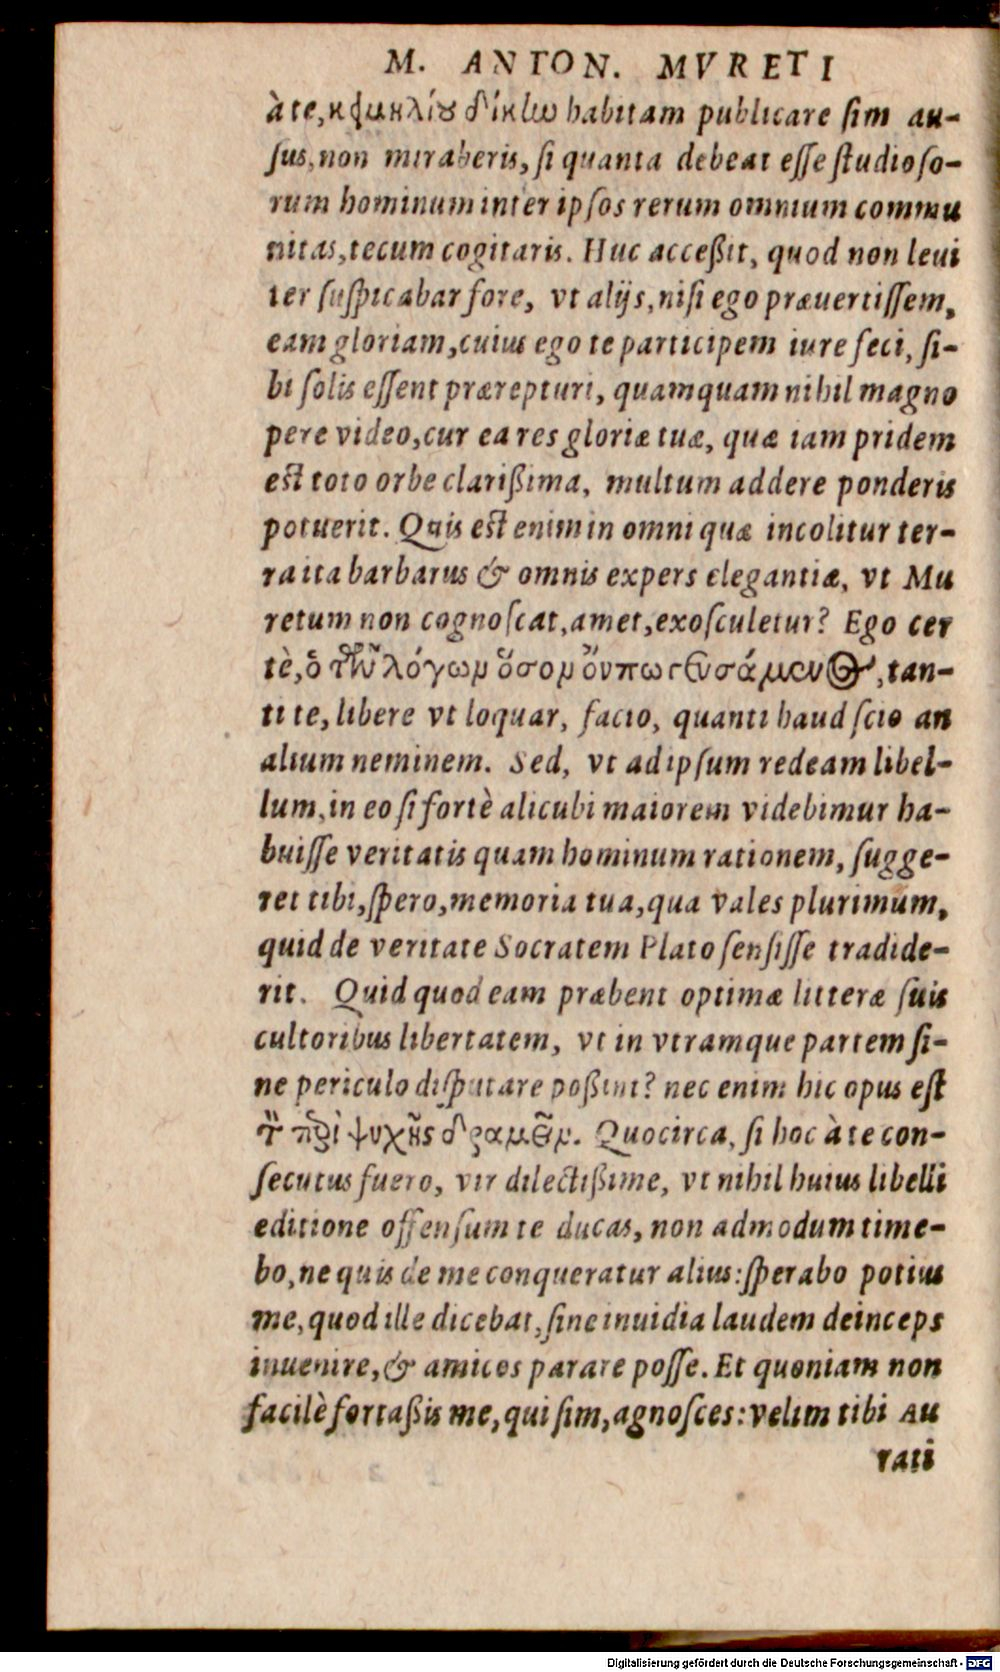 M. ANTON. MVRETI
à te, habitam publicare ſim au-
ſus, non miraberis, ſi quanta debeat eſſe ſtudioſo-
rum hominum inter ipſos rerum omnium commu
nitas, tecum cogitaris. Huc acceßit, quod non leui
ter ſuſpicabar fore, vt alijs, niſi ego præuertiſſem,
eam gloriam, cuius ego te participem iure feci, ſi-
bi ſolis eſſent prærepturi, quamquam nihil magno
pere video, cur ea res gloriæ tuæ, quæ iam pridem
eſt toto orbe clarißima, multum addere ponderis
potuerit. Quis eſt enim in omni quæ incolitur ter-
ra ita barbarus & omnis expers elegantiæ, vt Mu
retum non cognoſcat, amet, exoſculetur? Ego cer
tè, ὁ τῶν λόγων ὅσον οὔπω γευσάμενος, tan-
ti te, libere vt loquar, facio, quanti haud ſcio an
alium neminem. Sed, vt ad ipſum redeam libel-
lum, in eo ſi fortè alicubi maiorem videbimur ha-
buiſſe veritatis quam hominum rationem, ſugge-
ret tibi, ſpero, memoria tua, qua vales plurimùm,
quid de veritate Socratem Plato ſenſiſſe tradide-
rit. Quid quod eam præbent optimæ litteræ ſuis
cultoribus libertatem, vt in vtramque partem ſi-
ne periculo diſputare poßint? nec enim hic opus eſt
τὸν περὶ ψυχῆς δραμεῖν. Quocirca, ſi hoc à te con-
ſecutus fuero, vir dilectißime, vt nihil huius libelli
editione offenſum te ducas, non admodum time-
bo, ne quis de me conqueratur alius: ſperabo potius
me, quod ille dicebat, ſine inuidia laudem deinceps
inuenire, & amicos parare poſſe. Et quoniam non
facilè fortaßis me, qui ſim, agnoſces: velim tibi AU
rati
Digitalisierung gefördert durch die Deutsche Forschungsgemeinschaft - DFG